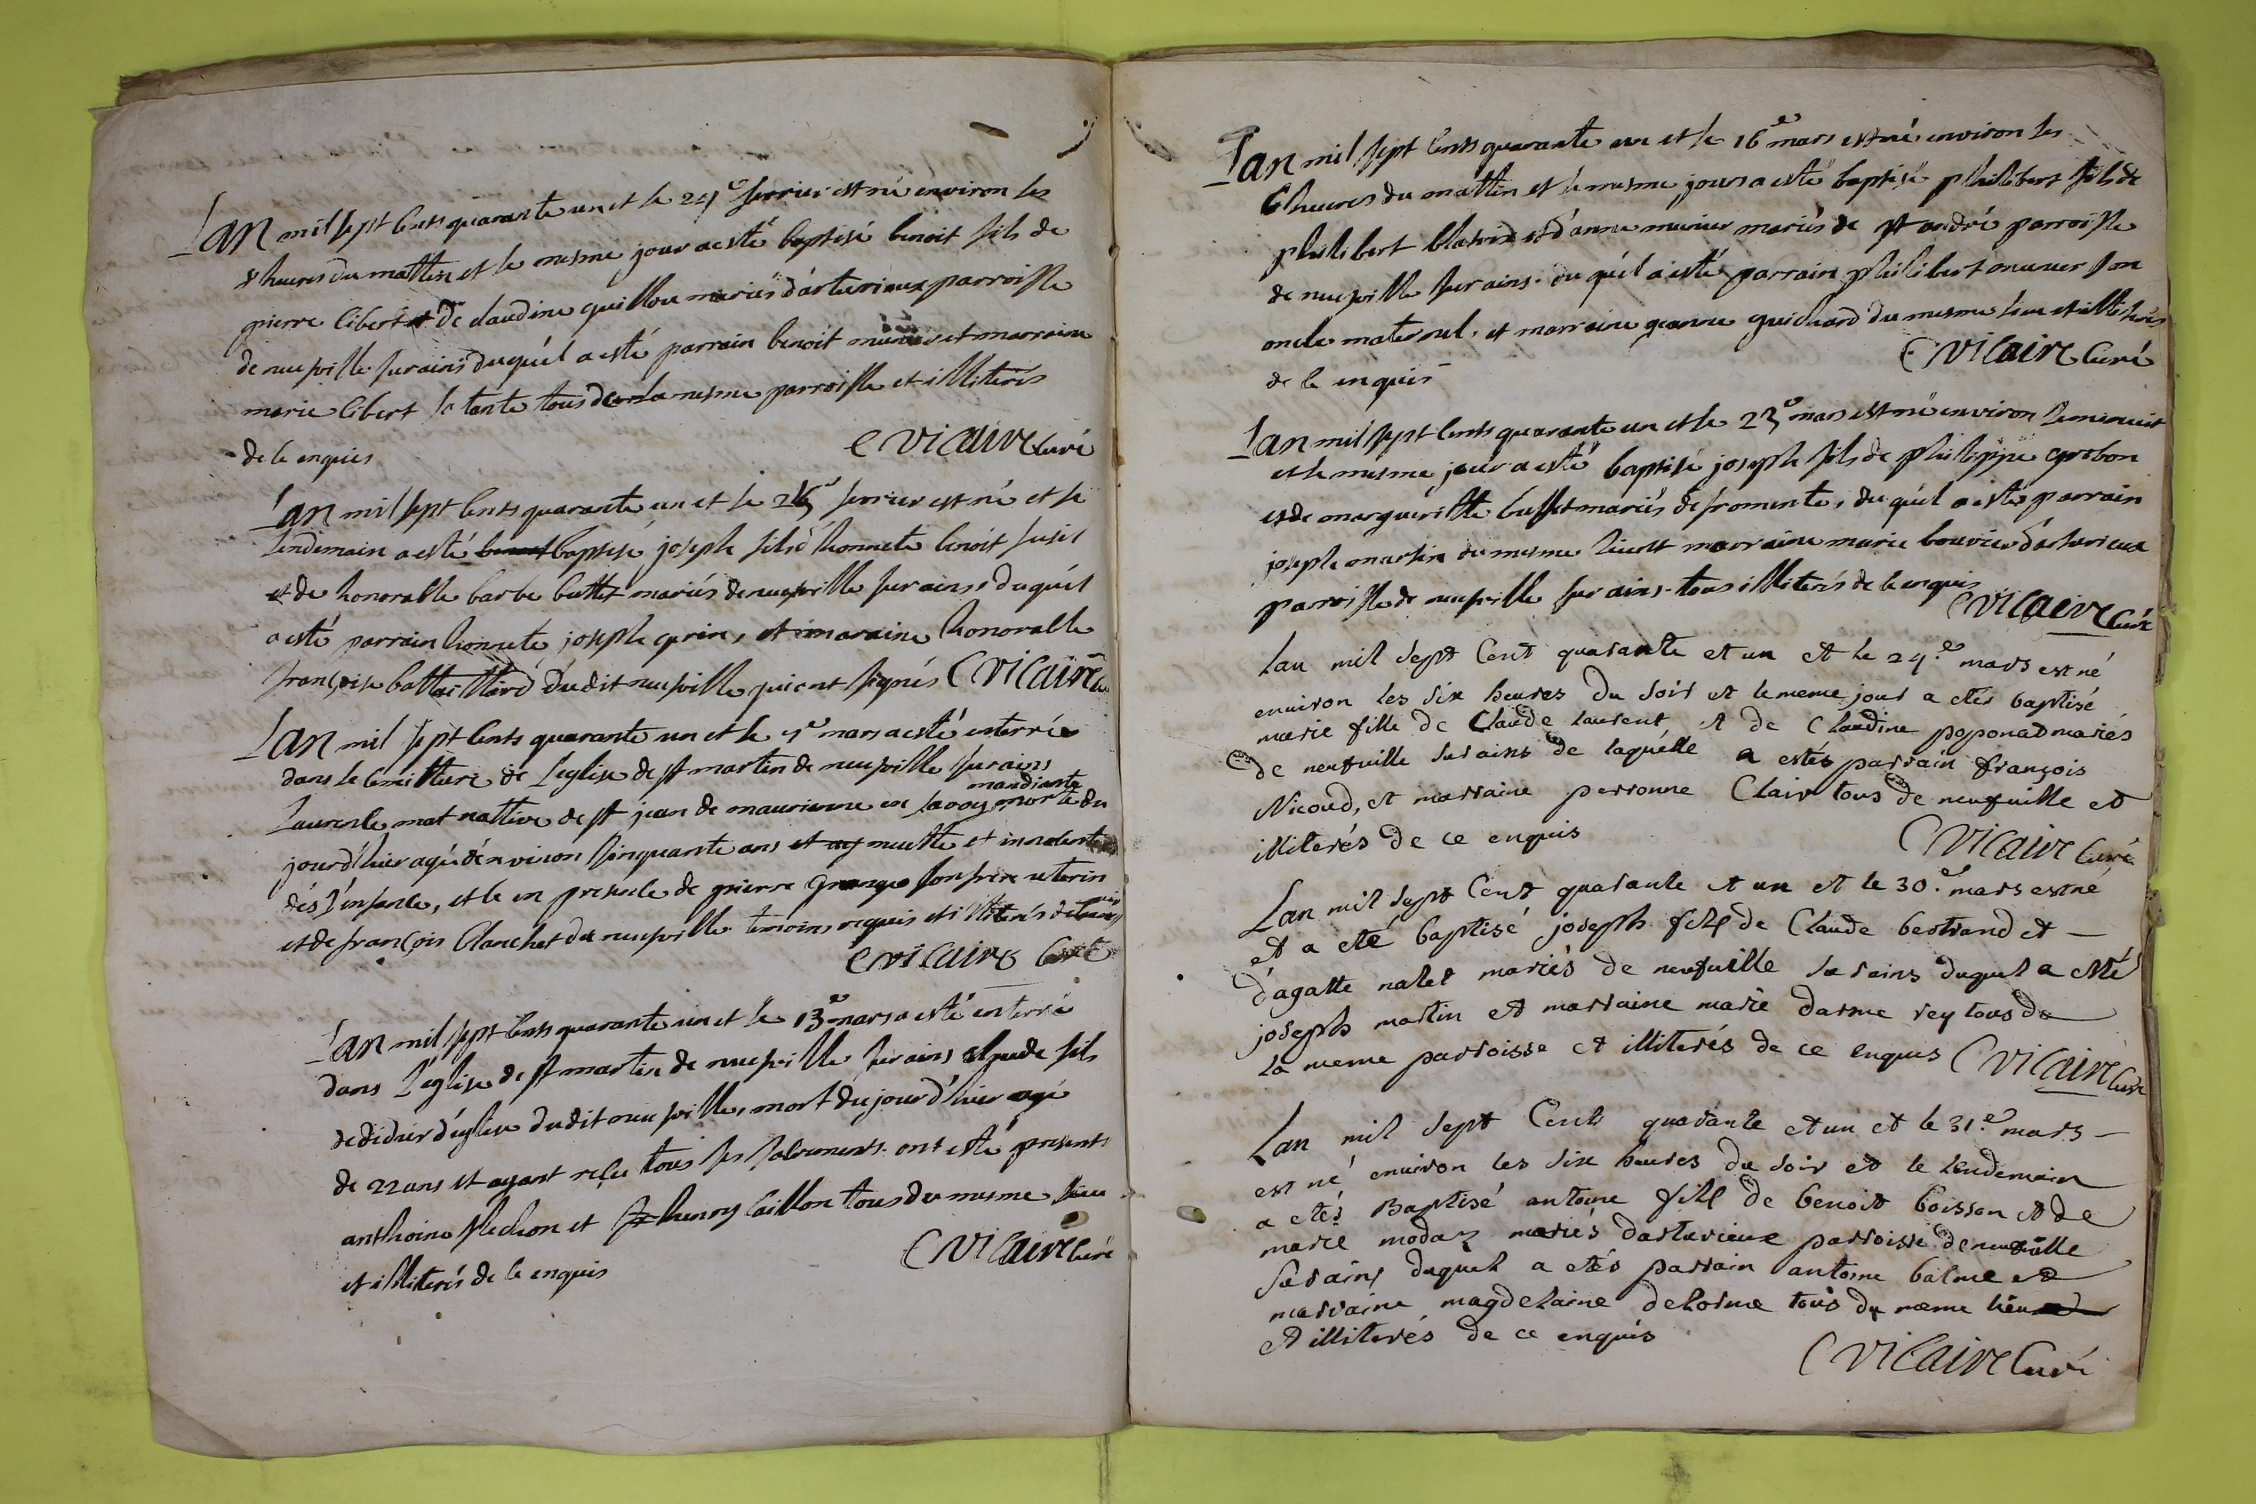 Lan mil sept cents quarante un et le 24e fevrier est né environ les
8 heures du mattin et le mesme jour a esté baptisé benoit fils de
pierre libert et de claudine quillou mariés d'arturieux parroisse
de neufville sur ains duquél a esté parrain benoit munier et marraine
marie libert sa tante tous de la mesme parroisse et illiterés
de ce enquis
C vicaire Curé
Lan mil sept cents quarante un et le 26e fevrier est né et le
lendemain a esté baptisé joseph fils d'honnete benoit
et de honorable barbe buttet mariés de neufville sur ains, duquél
a esté parrain honnete joseph, et maraine honorable
françoise battaillard dudit neufville qui ont signés C vicaire
Lan mil sept cents quarante un et le 5e mars a esté enterrée
dans le cimittere de l'eglise de st martin de neufville sur ains
mandiante
Laurence mat nattive de st jean de maurienne en savoy morte du
jourd'hier agé d'environ sinquante ans et muette et
dés l'enfance, et ce en presence de pierre grange son frere uterin
et de françois blanchet de neufville temoins requis et illiterés de ce enquis
C vicaire Curé
Lan mil sept cents quarante un et le 13e mars a esté enterré
dans l'eglise de st martin de neufville sur ains claude fils
de didier d'église dudit neufville, mort du jourd'hier agé
de 22 ans et ayant reçu tous ses sacrements. ont esté presents
anthoine et henry caillon tous du mesme lieu
et illiterés de ce enquis
C vicaire Curé
Lan mil sept cents quarante un et le 16e mars est né environ les
6 heures du mattin et le mesme jours a esté baptisé philibert fils de
philibert et d'anne munier mariés de st andré parroisse
de neufville sur ains. du quél a esté parrain philibert munier son
oncle maternel, et marraine jeanne guichard du mesme lieu et illiterés
de ce enquis
C vicaire Curé
Lan mil sept cents quarante un et le 23e mars est né environ le minuit
et le mesme jour a esté baptisé joseph fils de philippe
et de marguéritte buffet mariés de fromente, du quél a esté parrain
joseph martin du mesme lieu et marraine marie bouvier d'arturieux
parroisse de neufville sur ains. tous illiterés de ce enquis
C vicaire Curé
Lan mil sept Cent quarante et un et le 24.e mars est né
environ les six heures du soir et le meme jour a etés baptisé
marie fille de Claude laurent et de Claudine poponat mariés
de neufville sur ains de laquélle a estés parrain françois
Nicoud, et marraine perronne Clair tous de neufville et
illiterés de ce enquis
C vicaire Curé
Lan mil sept Cent quarante et un et le 30.e mars est né
et a eté baptisé joseph fils de Claude bertrand et
d'agatte nalet mariés de neufville sur ains duquel a eté
joseph martin et marraine marie darme rey tous de
la meme parroisse et illiterés de ce enquis C vicaire Curé
Lan mil sept Cents quarante et un et le 31.e mars
est né environ les six heures du soir et le lendemain
a etés Baptisé antoine fils de benoit boisson et de
marie modaz mariés darturieux parroisse de neufville
sur ains duquel a etés parrain antoine balme et
marraine magdelaine delorme tous du meme lieu
et illiterés de ce enquis
C vicaire Curé